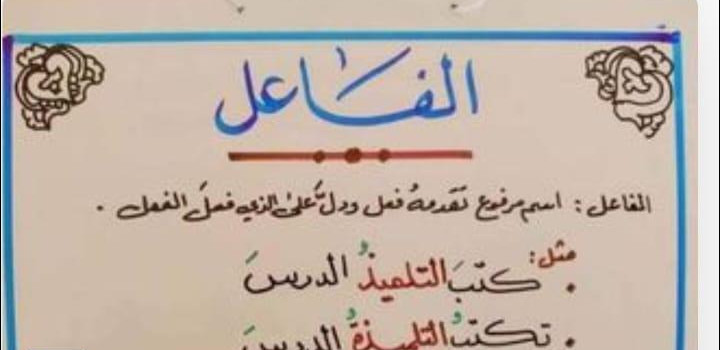 الفاعل
الفاعل : اسم مرفوع تقدمهُ فعل ودلَّ على الذي فعلَ الفعل .
مثل:
. كتبَ التلميذُ الدرسَ
. تكتبُ التلميذةُ الدرسَ